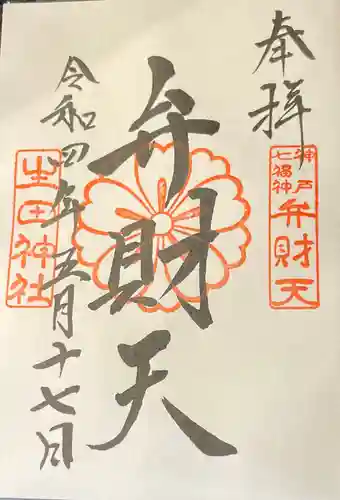 奉拝
神戸
七福神
弁財天
弁財天
令和四年五月十七日
生田神社